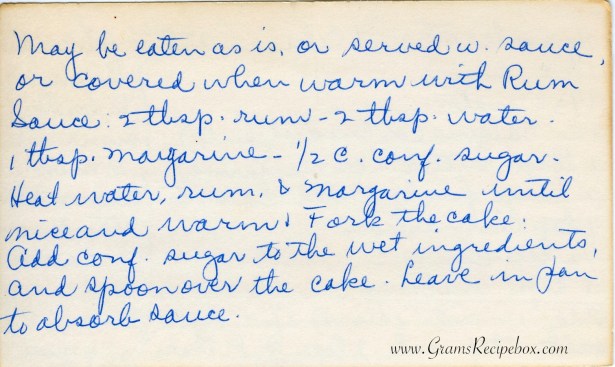 May be eaten as is, or served w. sauce,
or covered when warm with Rum
Sauce: 2 tbsp. rum - 2 tbsp. water.
1 tbsp. margarine - 1/2 c. conf. sugar.
Heat water, rum, & margarine until
nice and warm. Fork the cake.
Add conf. sugar to the wet ingredients,
and spoon over the cake. Leave in pan
to absorb sauce.
www.GramsRecipebox.com